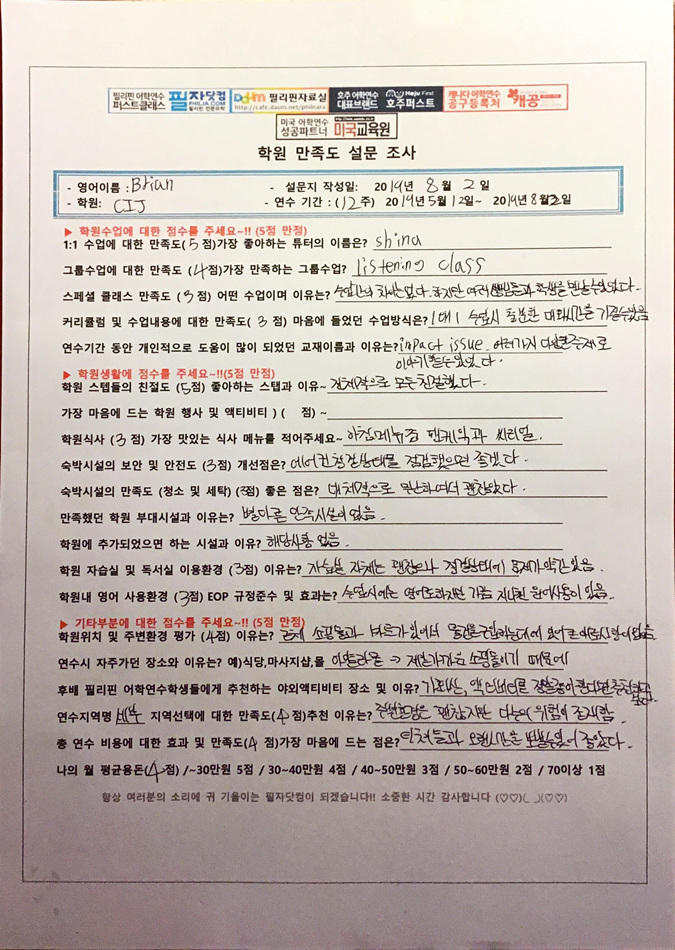 필리핀 어학연수 퍼스트클래스 필자닷컴 PHILJA.COM 필리핀 전문유학
Daum 필리핀자료실 http://cafe.daum.net/philnara
호주 어학연수 대표브랜드 Hoju First 호주퍼스트
캐나다 어학연수 공구등록처 캐공
미국 어학연수 성공파트너 미국교육원
학원 만족도 설문 조사
- 영어이름 : Brian - 설문지 작성일: 2019년 8월 2일
- 학원: CIJ - 연수 기간 : (12주) 2019년 5월 12일~ 2019년 8월 2일
▶ 학원수업에 대한 점수를 주세요~!! (5점 만점)
1:1 수업에 대한 만족도(5점)가장 좋아하는 튜터의 이름은? shina
그룹수업에 대한 만족도 (4점)가장 만족하는 그룹수업? listening class
스페셜 클래스 만족도 (3점) 어떤 수업이며 이유는? 수업간의 차이는 없다. 하지만 여러 쌤들과 학생을 만날수있었다.
커리큘럼 및 수업내용에 대한 만족도( 3 점) 마음에 들었던 수업방식은? 1대1 수업시 충분한 대화시간을 가질수있음
연수기간 동안 개인적으로 도움이 많이 되었던 교재이름과 이유는? impact issue. 여러가지 다양한주제로
이야기할수있었다.
▶ 학원생활에 점수를 주세요~!!(5점 만점)
학원 스텝들의 친절도 (5점) 좋아하는 스탭과 이유~ 전체적으로 모두친절했다.
가장 마음에 드는 학원 행사 및 액티비티 ) ( 점) ~
학원식사 (3점) 가장 맛있는 식사 메뉴를 적어주세요~ 아침메뉴중 팬케익과 씨리얼.
숙박시설의 보안 및 안전도 (3점) 개선점은? 에어컨청결상태를 점검했으면 좋겠다.
숙박시설의 만족도 (청소 및 세탁) (3점) 좋은 점은? 대체적으로 무난하여서 괜찮았다.
만족했던 학원 부대시설과 이유는? 별다른 만족시설이 없음.
학원에 추가되었으면 하는 시설과 이유? 해당사항 없음.
학원 자습실 및 독서실 이용환경 (3점) 이유는? 자습실 자체는 괜찮으나 청결상태에 문제가 약간있음.
학원내 영어 사용환경 (3점) EOP 규정준수 및 효과는? 수업시에는 영어로하지만 가끔 지나친 원어사용이 있음.
▶ 기타부분에 대한 점수를 주세요~!! (5점 만점)
학원위치 및 주변환경 평가 (4점) 이유는? 근처 쇼핑몰과 마트가있어서 물건을구입하는데에 있어 큰 어려움이 없음
연수시 자주가던 장소와 이유는? 예)식당,마사지샵,몰 → 제일가까운 쇼핑몰이기 때문에
후배 필리핀 어학연수학생들에게 추천하는 야외액티비티 장소 및 이유? 가와산, 액티비티를
연수지역명 세부 지역선택에 대한 만족도(4점)추천 이유는? 주변환경은 괜찮지만 다소의 위험이 존재함.
총 연수 비용에 대한 효과 및 만족도(4 점)가장 마음에 드는 점은? 티쳐들과 오랜시간을 보낼수있어 좋았다.
나의 월 평균용돈(4점) /~30만원 5점 / 30~40만원 4점 / 40~50만원 3점 / 50~60만원 2점 / 70이상 1점
항상 여러분의 소리에 귀 기울이는 필자닷컴이 되겠습니다!! 소중한 시간 감사합니다 (♡♡)(_ _)(♡♡)